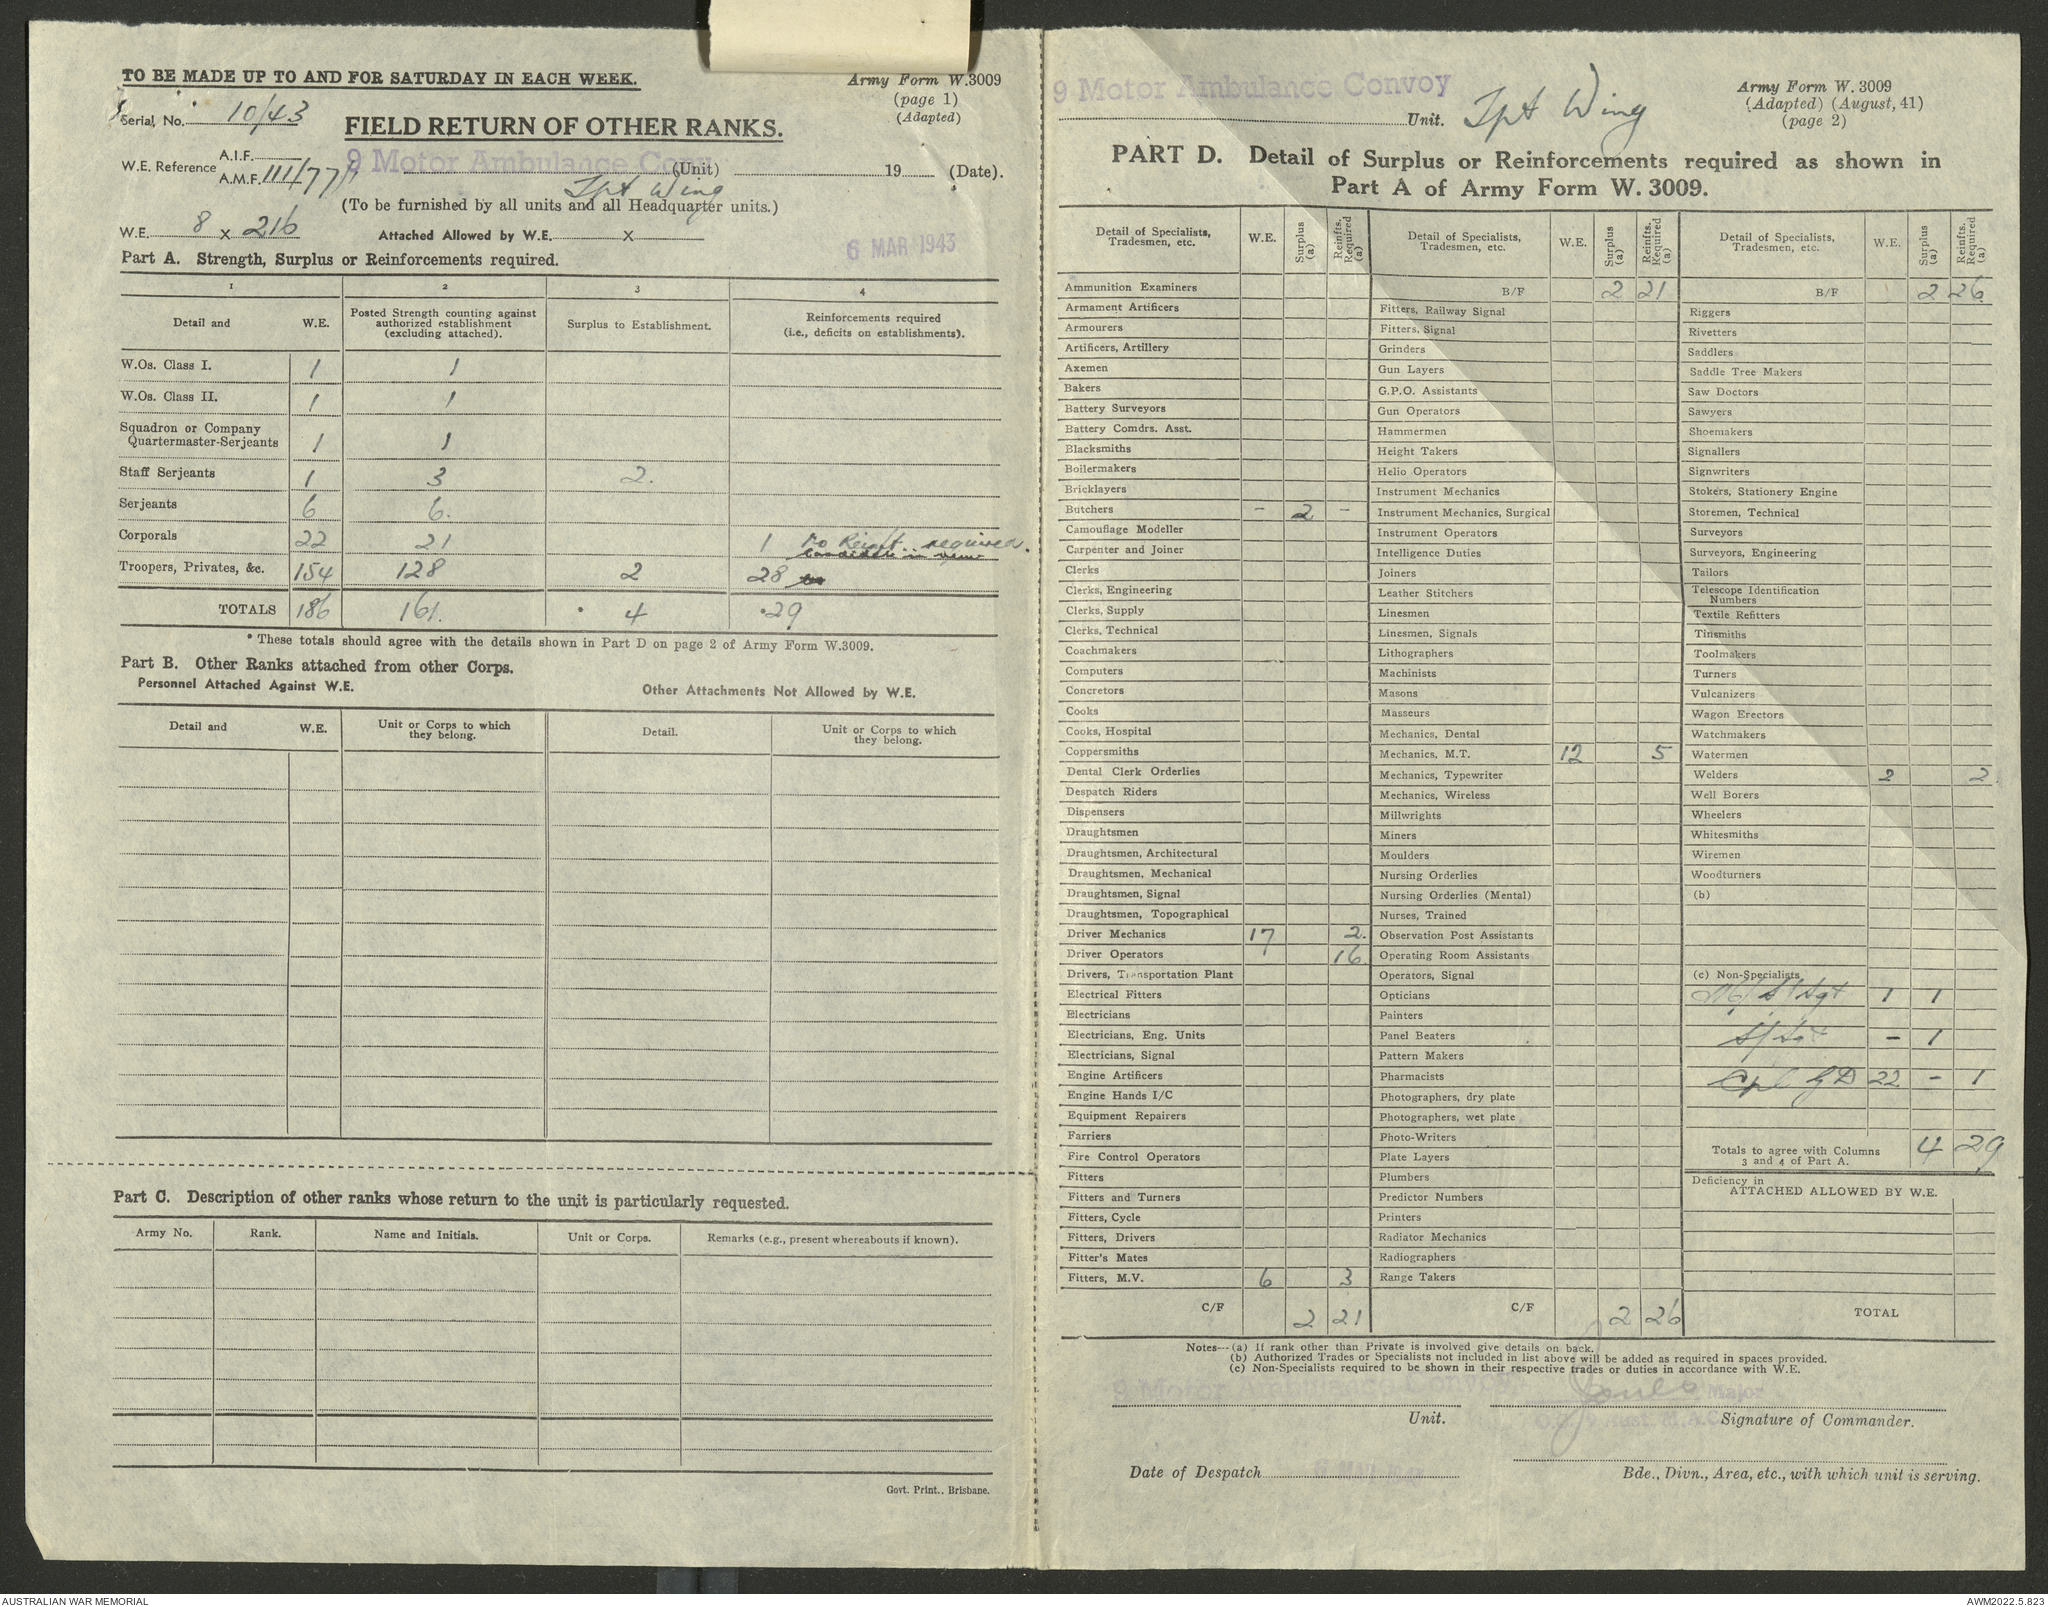 TO BE MADE UP TO AND FOR SATURDAY IN EACH WEEK.
Army Form W.3009
(page 1)
(Adapted)
Serial, No. 10/43
FIELD RETURN OF OTHER RANKS.
W.E. Reference A.I.F.
A.M.F. III/77/
9 Motor Ambulance Convoy (Unit) 19 (Date).
Tpt Wing
(To be furnished by all units and all Headquarter units.)
W.E. 8 x 216 Attached Allowed by W.E. x
6 MAR 1943
Part A. Strength, Surplus or Reinforcements required.
1 2 3 4
Detail and W.E. Posted Strength counting against authorized establishment (excluding attached). Surplus to Establishment. Reinforcements required (i.e., deficits on establishments).
W.Os. Class I. 1 1
W.Os. Class II. 1 1
Squadron or Company
Quartermaster-Serjeants 1 1
Staff Serjeants 1 3 2.
Serjeants 6 6.
Corporals 22 21 1 No Reinft. required.
Troopers, Privates, &c. 154 128 2 28
TOTALS 186 161. * 4 * 29
* These totals should agree with the details shown in Part D on page 2 of Army Form W.3009.
Part B. Other Ranks attached from other Corps.
Personnel Attached Against W.E. Other Attachments Not Allowed by W.E.
Detail and W.E. Unit or Corps to which they belong. Detail. Unit or Corps to which they belong.
Part C. Description of other ranks whose return to the unit is particularly requested.
Army No. Rank. Name and Initials. Unit or Corps. Remarks (e.g., present whereabouts if known).
Govt. Print., Brisbane.
9 Motor Ambulance Convoy
Unit. Tpt Wing
Army Form W. 3009
(Adapted) (August, 41)
(page 2)
PART D. Detail of Surplus or Reinforcements required as shown in
Part A of Army Form W. 3009.
Detail of Specialists, Tradesmen, etc. W.E. Surplus (a) Reinfts. Required (a)
Ammunition Examiners
Armament Artificers
Armourers
Artificers, Artillery
Axemen
Bakers
Battery Surveyors
Battery Comdrs. Asst.
Blacksmiths
Boilermakers
Bricklayers
Butchers - 2 -
Camouflage Modeller
Carpenter and Joiner
Clerks
Clerks, Engineering
Clerks, Supply
Clerks, Technical
Coachmakers
Computers
Concretors
Cooks
Cooks, Hospital
Coppersmiths
Dental Clerk Orderlies
Despatch Riders
Dispensers
Draughtsmen
Draughtsmen, Architectural
Draughtsmen, Mechanical
Draughtsmen, Signal
Draughtsmen, Topographical
Driver Mechanics 17 2.
Driver Operators 16
Drivers, Transportation Plant
Electrical Fitters
Electricians
Electricians, Eng. Units
Electricians, Signal
Engine Artificers
Engine Hands I/C
Equipment Repairers
Farriers
Fire Control Operators
Fitters
Fitters and Turners
Fitters, Cycle
Fitters, Drivers
Fitter's Mates
Fitters, M.V. 6 3
C/F 2 21
Detail of Specialists, Tradesmen, etc. W.E. Surplus (a) Reinfts. Required (a)
B/F 2 21
Fitters, Railway Signal
Fitters, Signal
Grinders
Gun Layers
G.P.O. Assistants
Gun Operators
Hammermen
Height Takers
Helio Operators
Instrument Mechanics
Instrument Mechanics, Surgical
Instrument Operators
Intelligence Duties
Joiners
Leather Stitchers
Linesmen
Linesmen, Signals
Lithographers
Machinists
Masons
Masseurs
Mechanics, Dental
Mechanics, M.T. 12 5
Mechanics, Typewriter
Mechanics, Wireless
Millwrights
Miners
Moulders
Nursing Orderlies
Nursing Orderlies (Mental)
Nurses, Trained
Observation Post Assistants
Operating Room Assistants
Operators, Signal
Opticians
Painters
Panel Beaters
Pattern Makers
Pharmacists
Photographers, dry plate
Photographers, wet plate
Photo-Writers
Plate Layers
Plumbers
Predictor Numbers
Printers
Radiator Mechanics
Radiographers
Range Takers
C/F 2 26
Detail of Specialists, Tradesmen, etc. W.E. Surplus (a) Reinfts. Required (a)
B/F 2 26
Riggers
Rivetters
Saddlers
Saddle Tree Makers
Saw Doctors
Sawyers
Shoemakers
Signallers
Signwriters
Stokers, Stationery Engine
Storemen, Technical
Surveyors
Surveyors, Engineering
Tailors
Telescope Identification
Numbers
Textile Refitters
Tinsmiths
Toolmakers
Turners
Vulcanizers
Wagon Erectors
Watchmakers
Watermen
Welders 2 2.
Well Borers
Wheelers
Whitesmiths
Wiremen
Woodturners
(b)
(c) Non-Specialists
S/Sgt 1 1
S/Sgt - 1
Cpl GD 22 - 1
Totals to agree with Columns 3 and 4 of Part A. 4 29
Deficiency in
ATTACHED ALLOWED BY W.E.
TOTAL
Notes---(a) If rank other than Private is involved give details on back.
(b) Authorized Trades or Specialists not included in list above will be added as required in spaces provided.
(c) Non-Specialists required to be shown in their respective trades or duties in accordance with W.E.
9 Motor Ambulance Convoy Major
Unit. Signature of Commander.
Date of Despatch 6 MAR 1943
Bde., Divn., Area, etc., with which unit is serving.
AUSTRALIAN WAR MEMORIAL
AWM2022.5.823